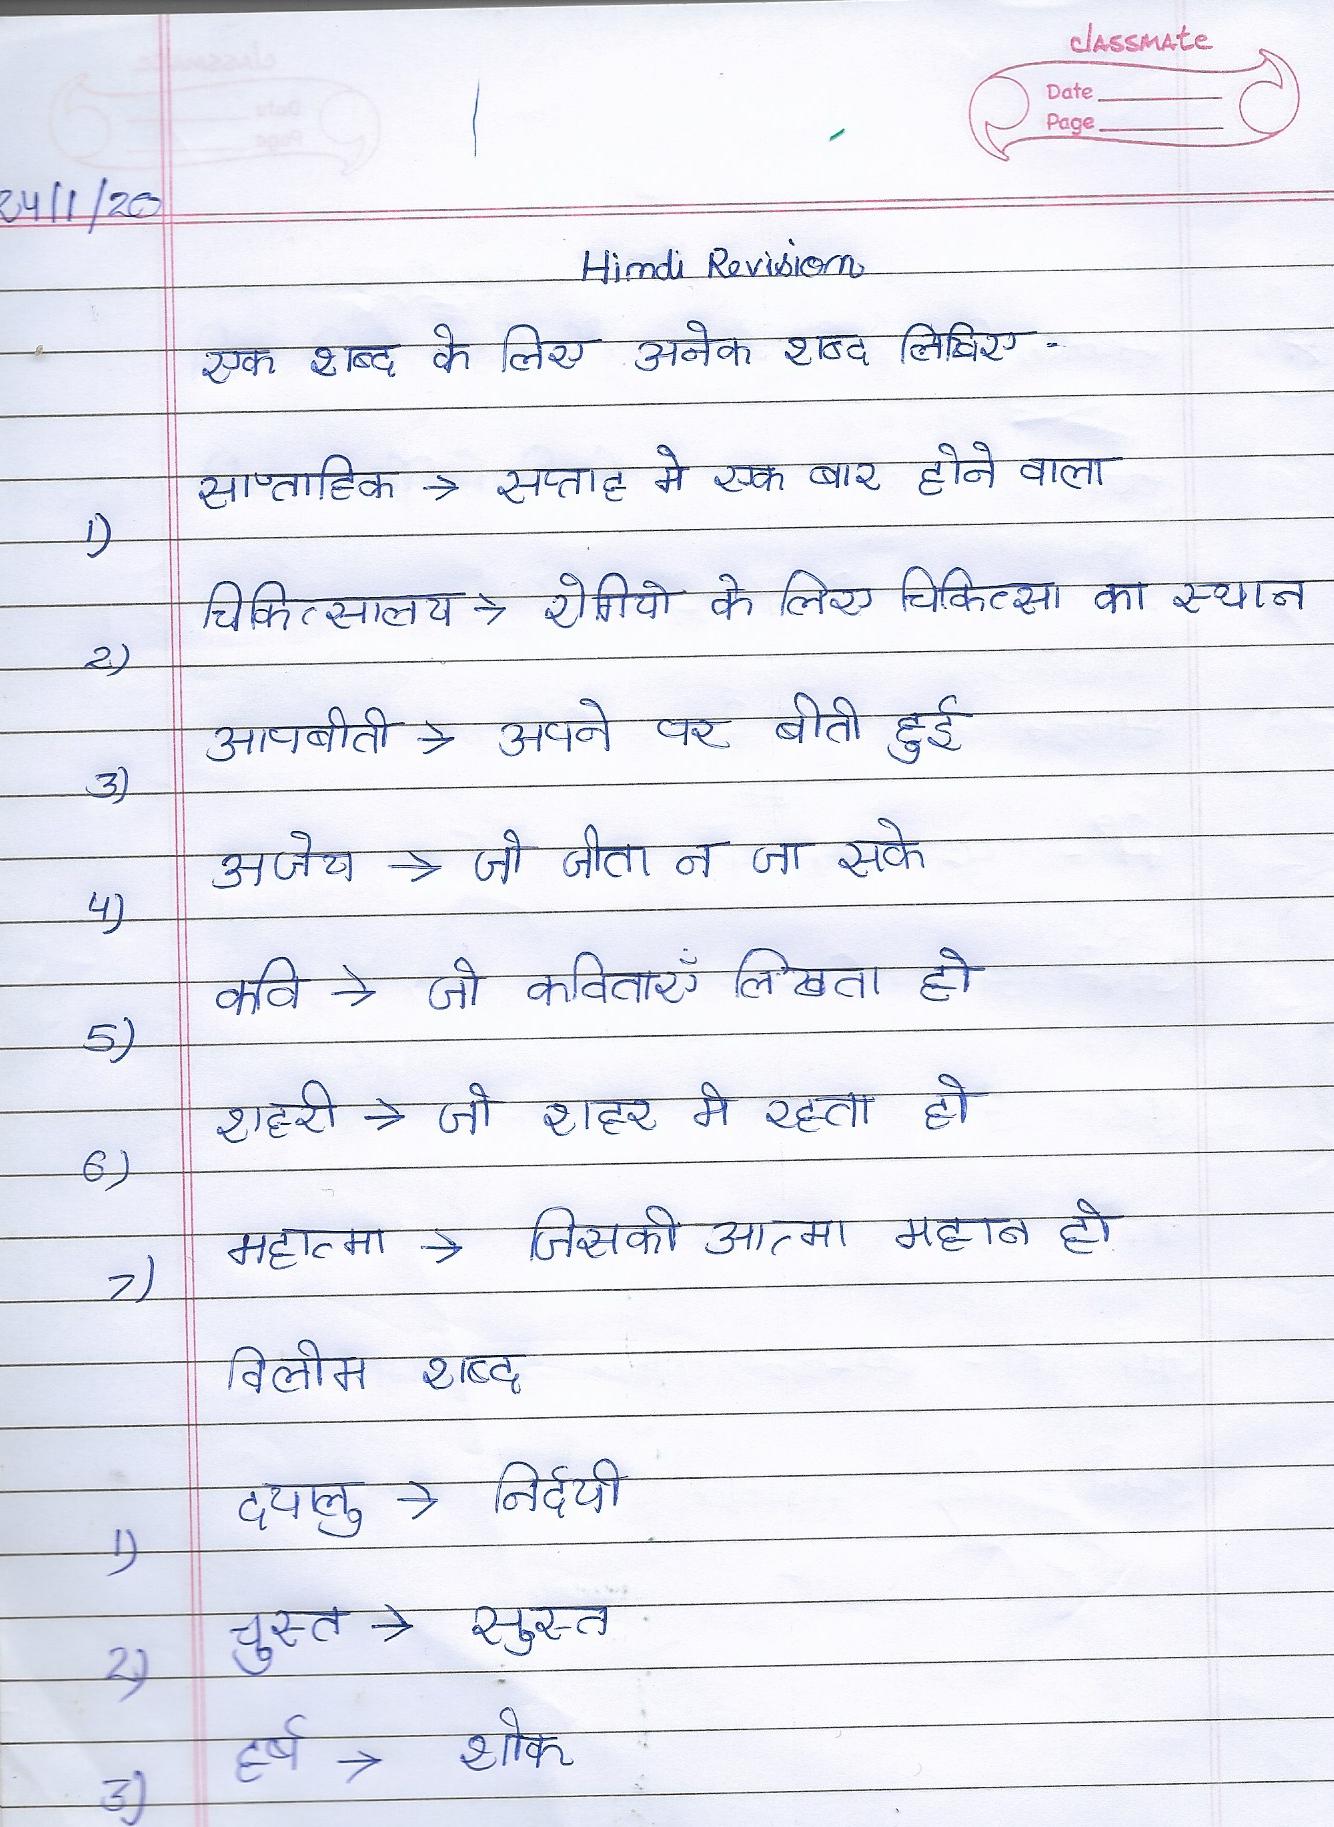 classmate
Date
Page
24/1/20
Hindi Revision
एक शब्द के लिए अनेक शब्द लिखिए -
1) साप्ताहिक → सप्ताह मे एक बार होने वाला
2) चिकित्सालय → रोगियो के लिए चिकित्सा का स्थान
3) आपबीती → अपने पर बीती हुई
4) अजेय → जो जीता न जा सके
5) कवि → जो कविताएँ लिखता हो
6) शहरी → जो शहर मे रहता हो
7) महात्मा → जिसकी आत्मा महान हो
विलोम शब्द
1) दयालु → निर्दयी
2) चुस्त → सुस्त
3) हर्ष → शोक